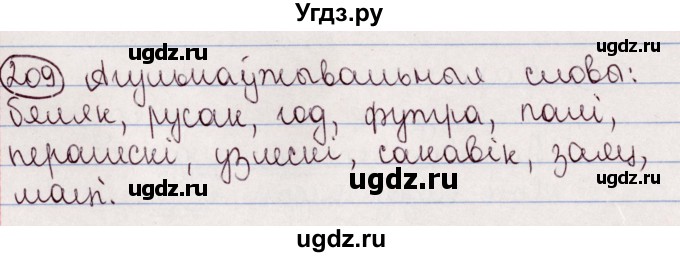 Угдз.ру
209 Агульнаўжывальныя словы:
бяляк, русак, год, футра, палі,
пералескі, узлескі, сакавік, заяц,
май.
ugdz.ru
ugdz.ru
ugdz.ru
ugdz.ru
ugdz.ru
ugdz.ru